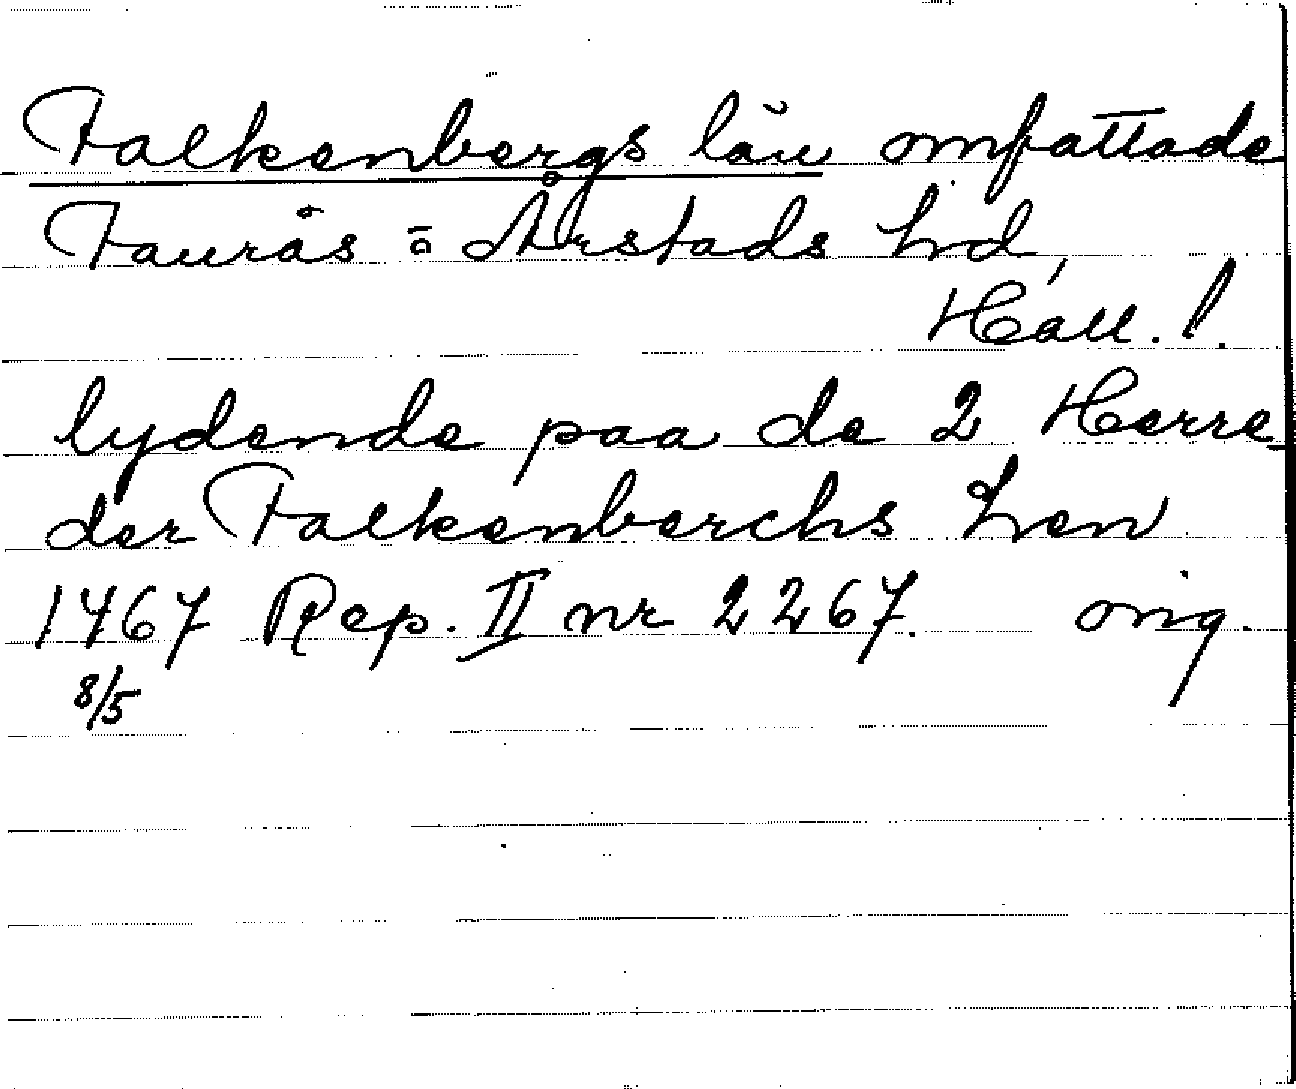 Falkenbergs län omfattade
Faurås o Årstads hd,
Hall. l.
lydende paa de 2 Herre-
der Falkenberchs Len
1467 Rep. II nr 2267. orig.
8/5